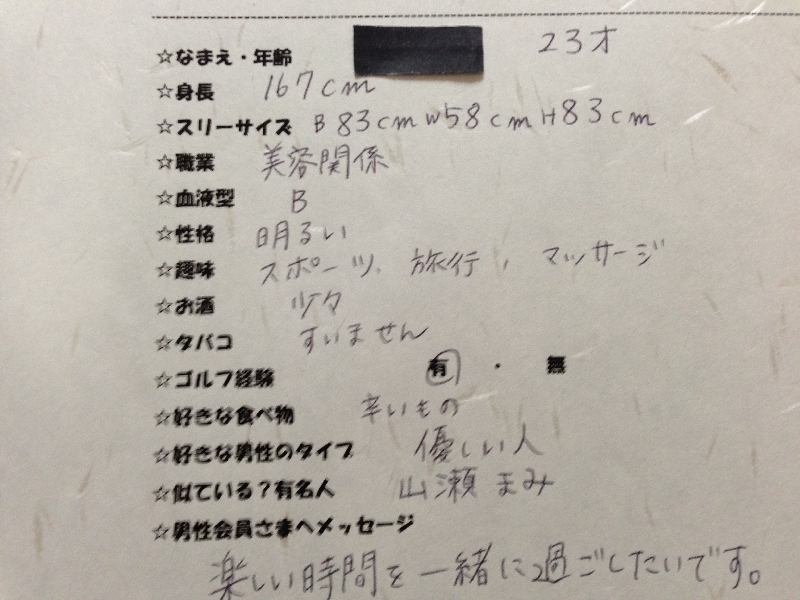 ☆なまえ・年齢 23才
☆身長 167cm
☆スリーサイズ B 83cm W58cm H83cm
☆職業 美容関係
☆血液型 B
☆性格 明るい
☆趣味 スポーツ、旅行、マッサージ
☆お酒 少々
☆タバコ すいません
☆ゴルフ経験 有 ・ 無
☆好きな食べ物 辛いもの
☆好きな男性のタイプ 優しい人
☆似ている?有名人 山瀬まみ
☆男性会員さまへメッセージ
楽しい時間を一緒に過ごしたいです。